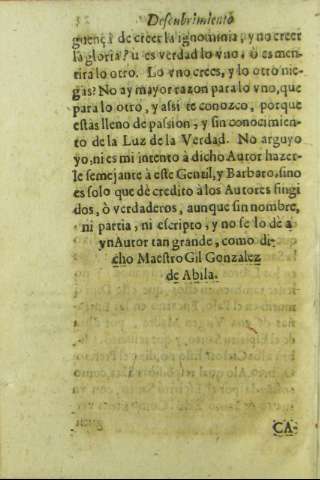 32 Descubrimiento
guença de creer la ignominia, y no creer
la gloria? u es verdad lo vno, ò es men-
tira lo otro. Lo vno crees, y lo otro nie-
gas? No ay mayor razon para lo vno, que
para lo otro, y assi te conozco, porque
estàs lleno de passion, y sin conocimien-
to de la Luz de la Verdad. No arguyo
yo, ni es mi intento à dicho Autor hazer-
le semejante à este Gentil, y Barbaro, sino
es solo que dè credito à los Autores fingi
dos, ò verdaderos, aunque sin nombre,
ni patria, ni escripto, y no se lo dè a
vn Autor tan grande, como di-
cho Maestro Gil Gonzalez
de Abila.
CA-